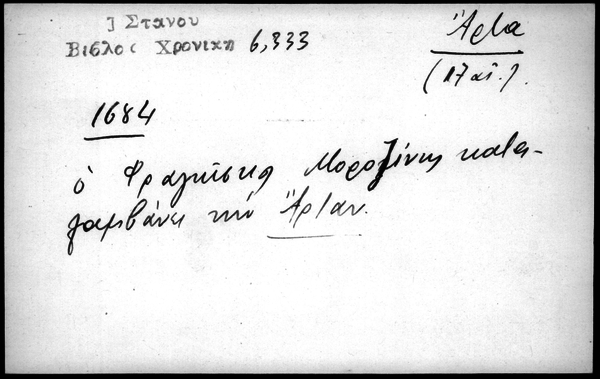 Ἰ Στανου
Βιβλος Χρονικη 6,333
Ἄρτα
(17 αἰ.)
1684
ὁ Φραγκῖσκος Μοροζίνης κατα-
λαμβάνει τὴν Ἄρταν.